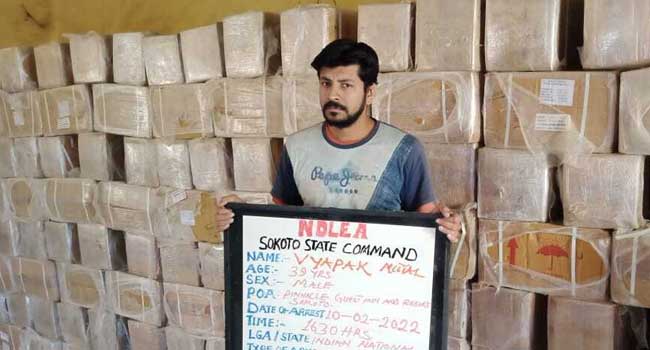 Pepe Jeans
NDLEA
SOKOTO STATE COMMAND
NAME:- VYAPAK NUTAL
AGE:- 39 YRS
SEX:- MALE
POA:- PINNACLE GUEST INN AND RESORT
SOKOTO.
DATE OF ARREST 10-02-2022
TIME:- 1630 HRS
LGA/STATE INDIAN NATIONAL